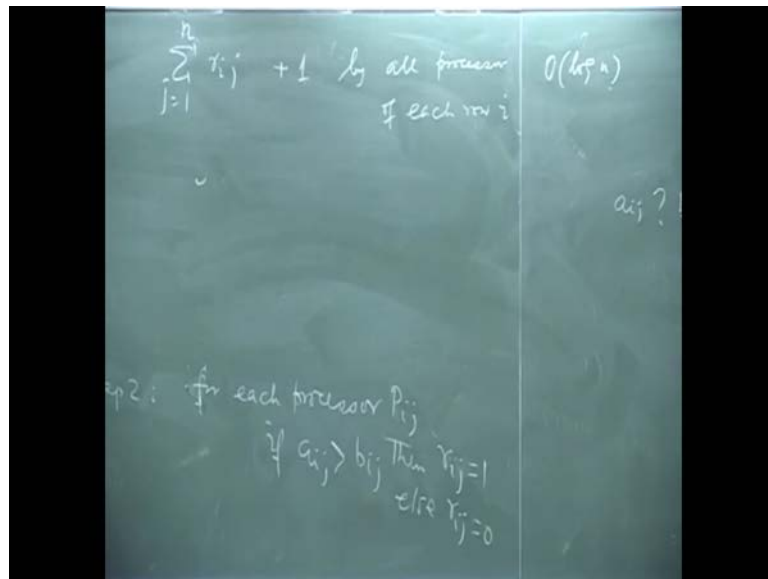 n
∑ rij + 1 by all processor O(log n)
j=1
of each row i
aij ?
ep2: for each processor Pij
if aij > bij Then rij=1
else rij=0